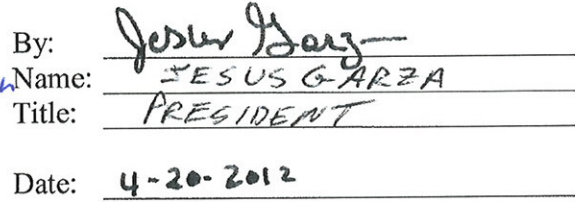 By: Jesus Garza
Name: JESUS GARZA
Title: PRESIDENT
Date: 4-20-2012